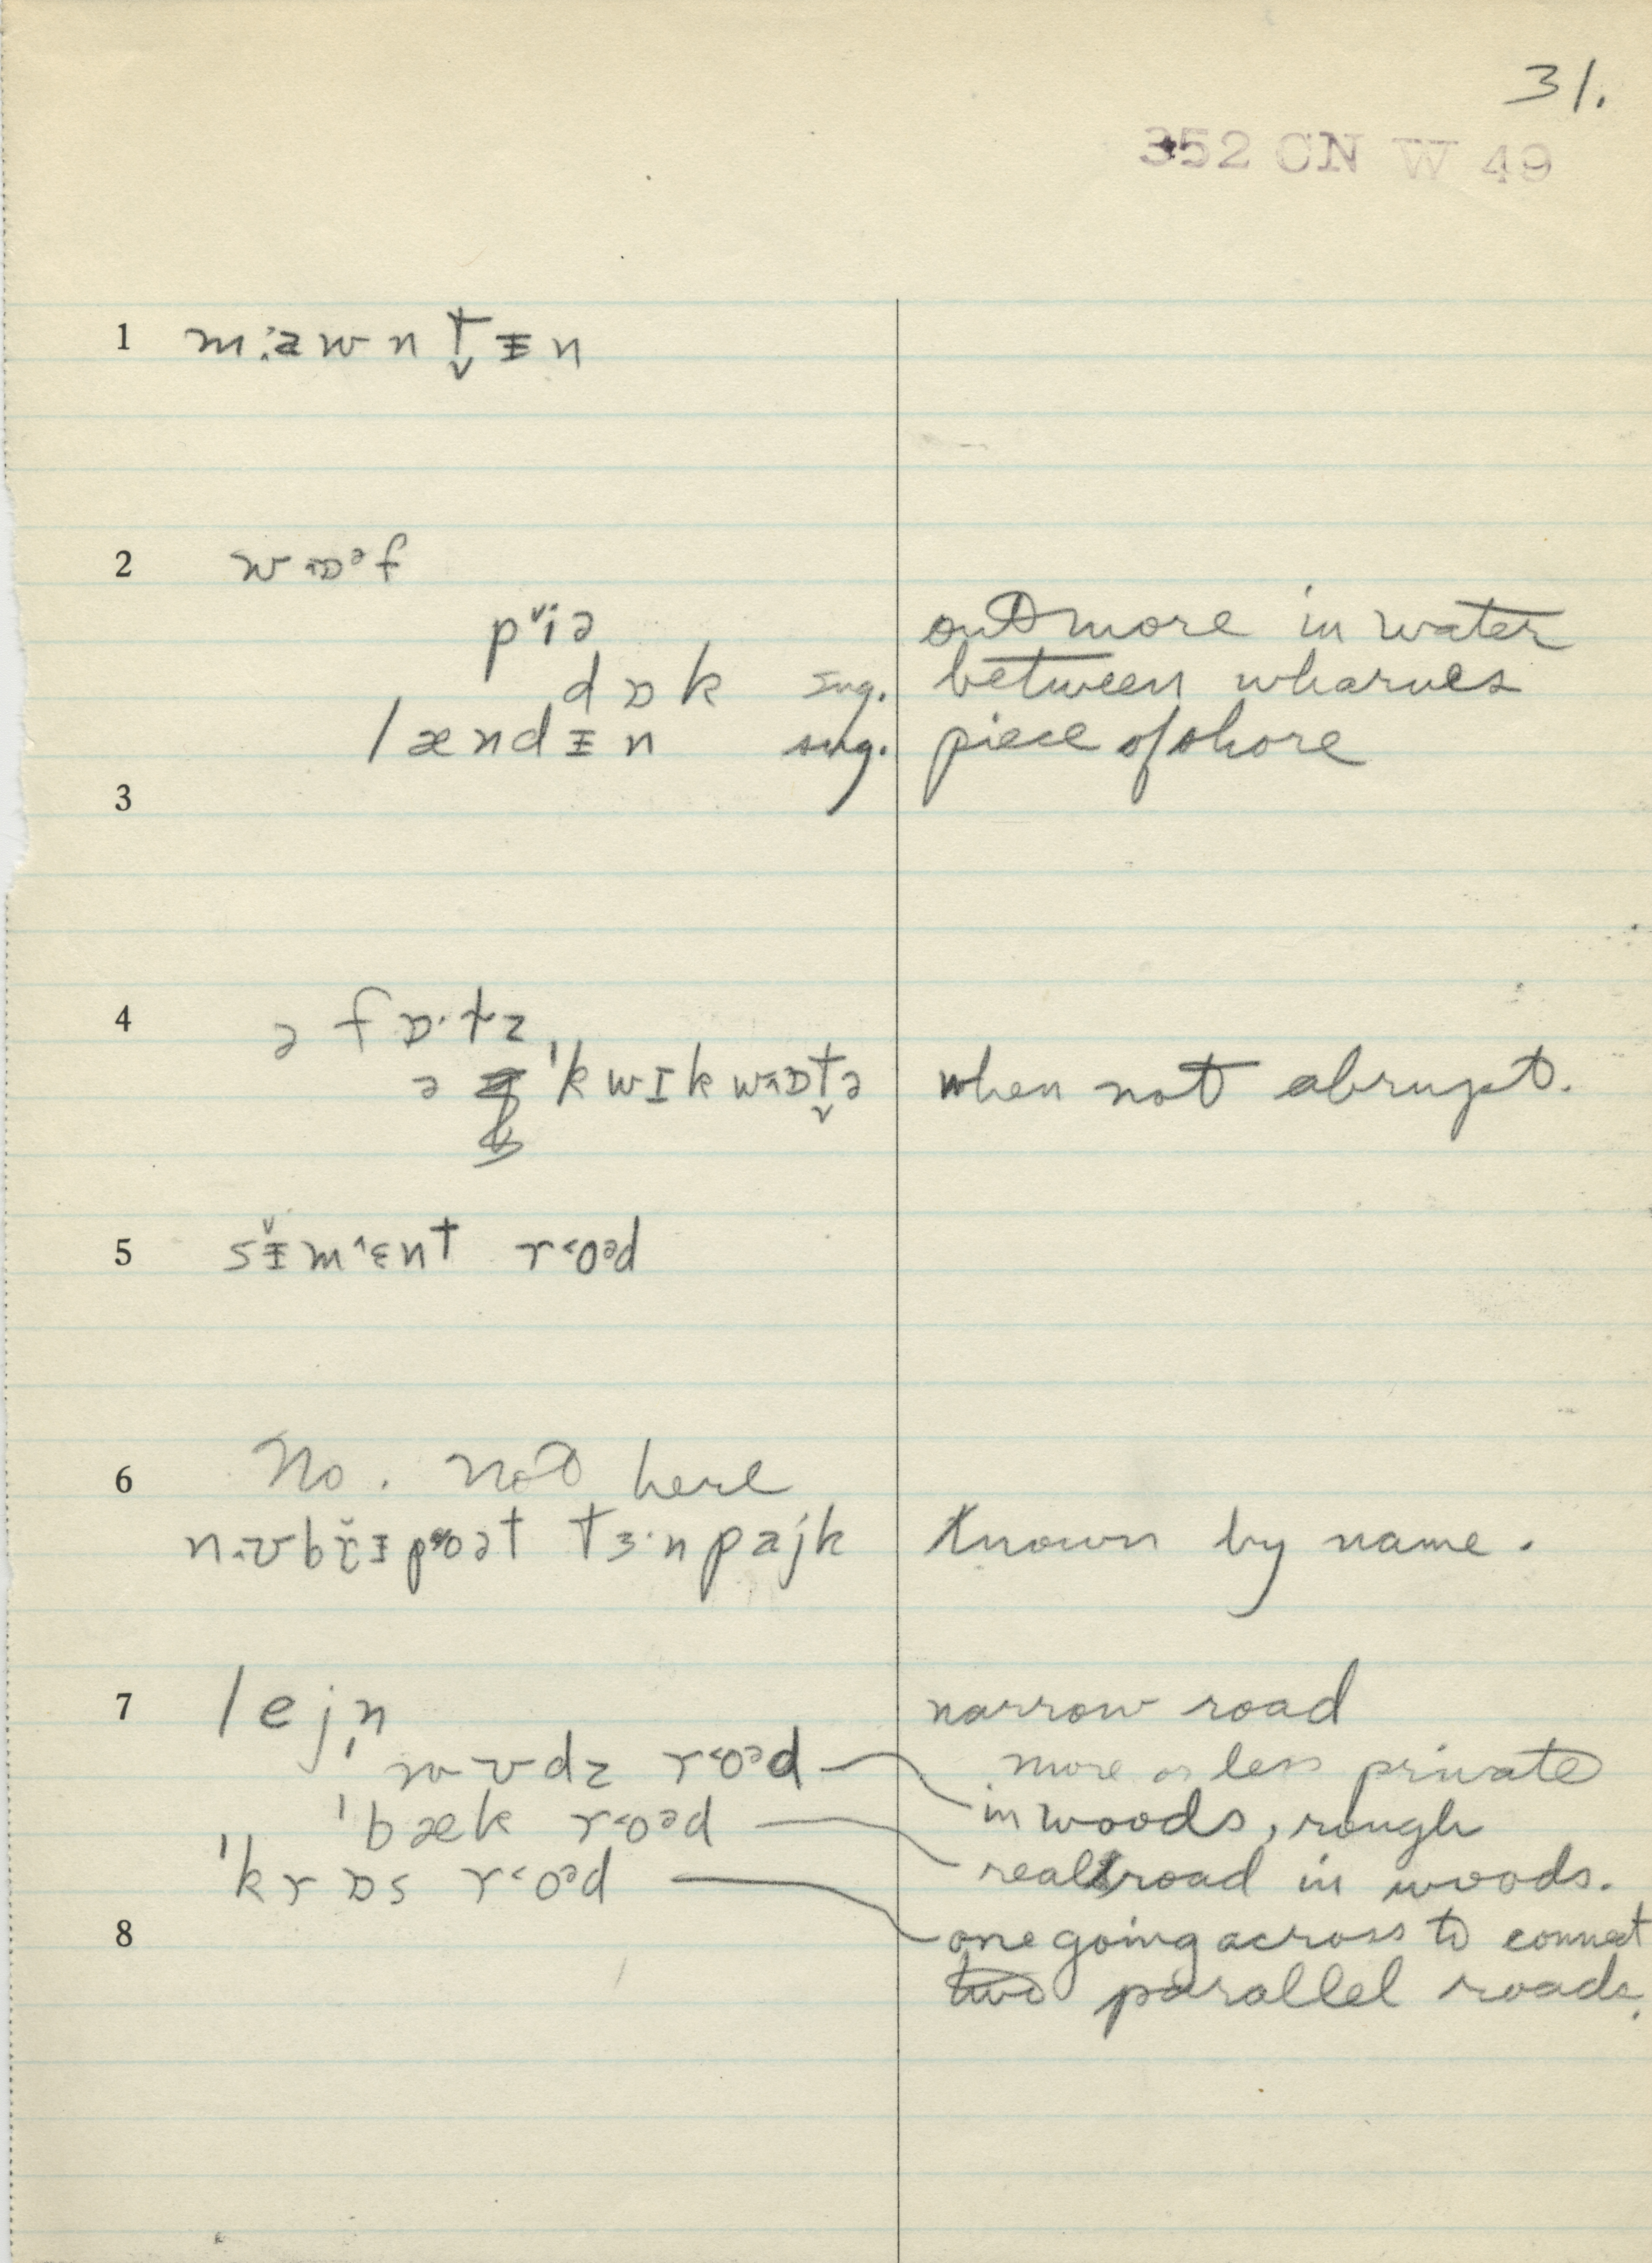 31.
352 CN W 49
1 mawntɨn
2 wɒəf
piə out more in water
dɒk sug. between wharves
lændɨn sug. piece of shore
3
4 ə fɒ·lz
ə 'kwɪkwɒtə when not abrupt.
5 sɨmɛnt roəd
6 No. Not here
poət tɜ·npajk Known by name.
7 lejn narrow road
'wʊdz roəd more or less private
in woods, rough
'bæk roəd real road in woods.
'krɒs roəd
8 one going across to connect
two parallel roads.